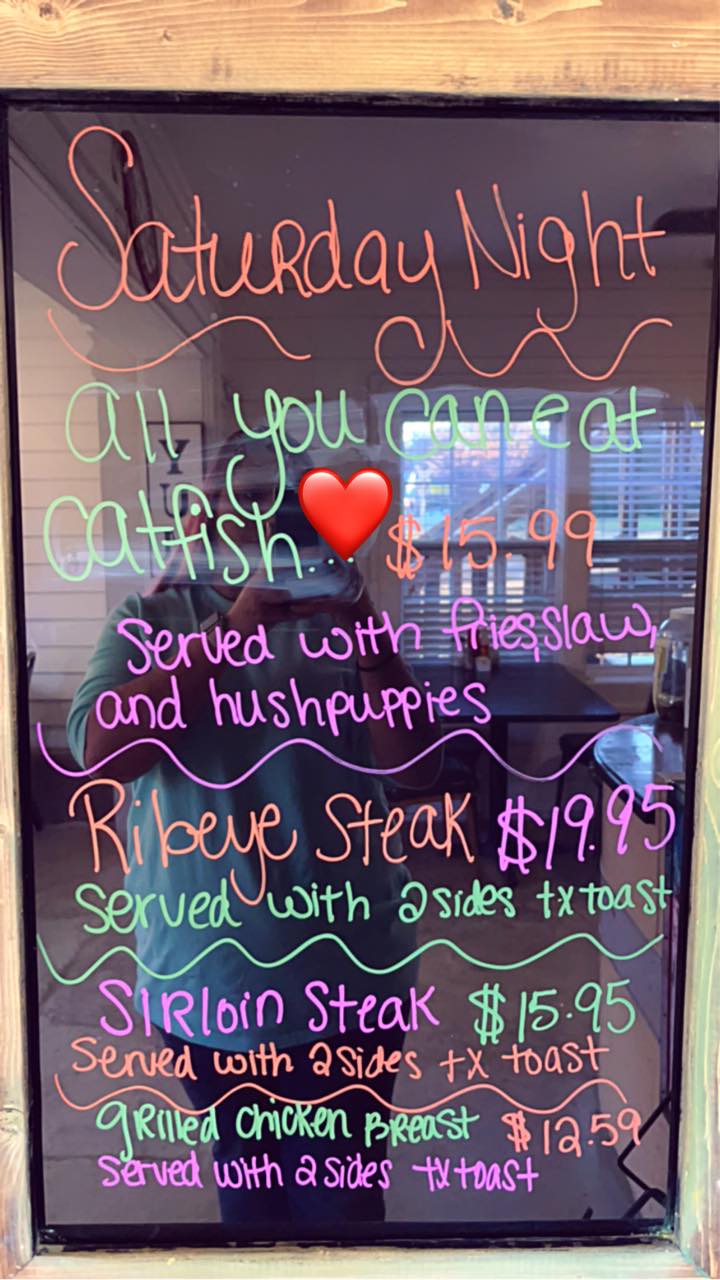 Saturday Night
all you can eat
catfish... ❤️ $15.99
Served with fries, slaw,
and hushpuppies
Ribeye Steak $19.95
Served with 2 sides tx toast
Sirloin Steak $15.95
Served with 2 sides tx toast
grilled chicken Breast $12.59
Served with 2 sides tx toast
Y
U